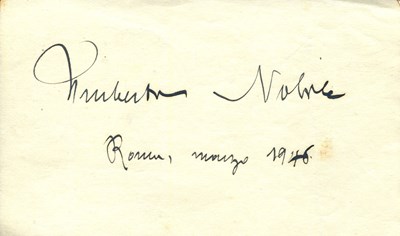 Umberto Nobile
Roma, marzo 1946.